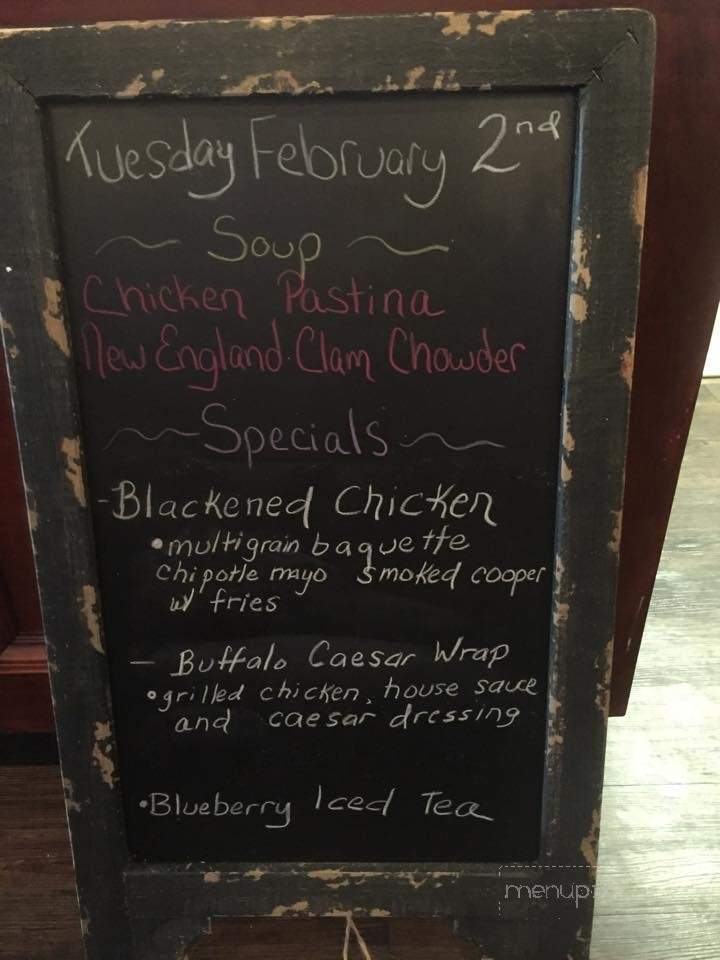 Tuesday February 2nd
~ Soup ~
Chicken Pastina
New England Clam Chowder
~ Specials ~
- Blackened Chicken
• multigrain baguette
chipotle mayo smoked cooper
w/ fries
- Buffalo Caesar Wrap
• grilled chicken, house sauce
and caesar dressing
• Blueberry Iced Tea